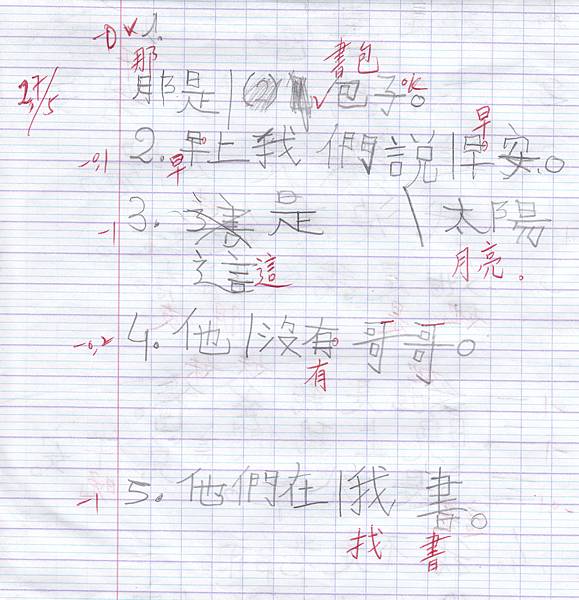 -0 ✓ 1.
那 書包
2,7/5 那是 包子。 ok
早
-0,1 2. 早上我們說早安。
早
-1 3. 這是 太陽
這 這 月亮。
-0,2 4. 他沒有哥哥。
有
-1 5. 他們在我書。
找 書